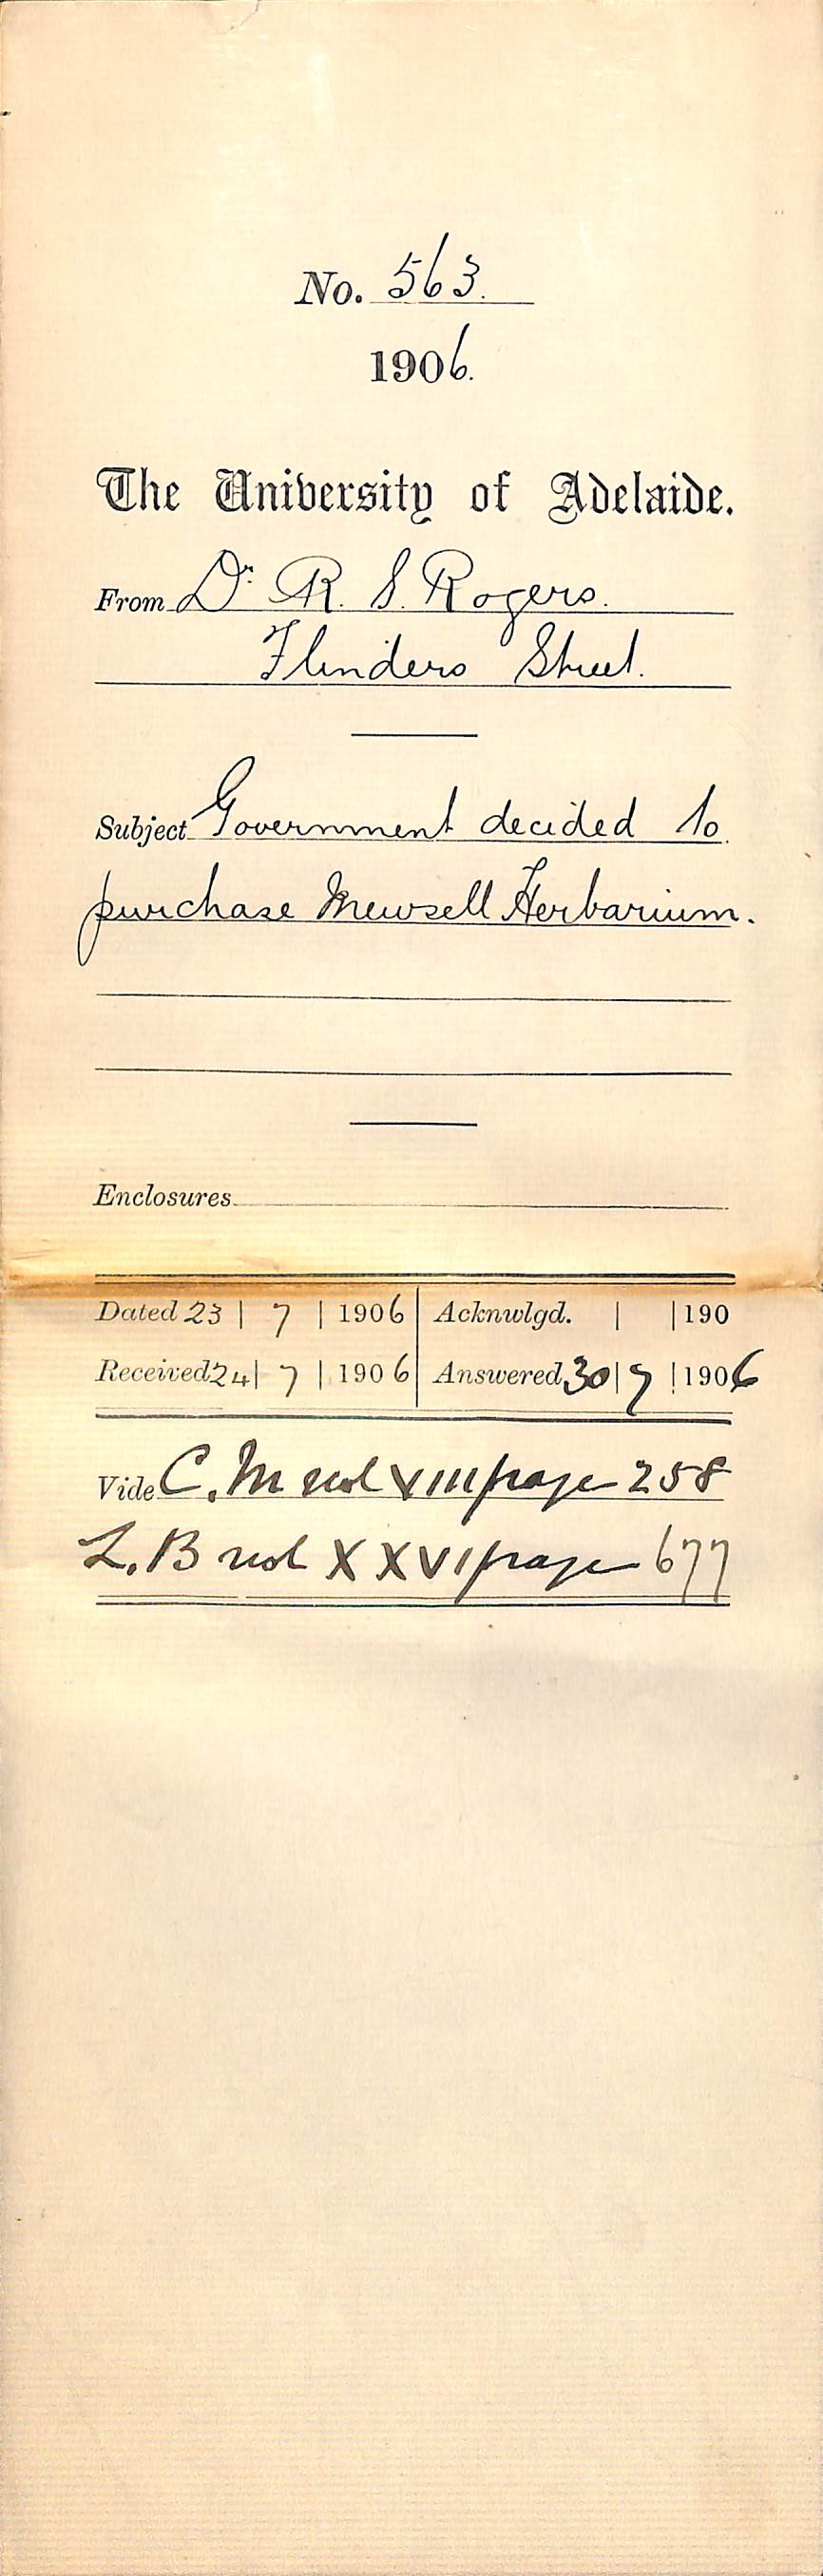 No. 563.
1906.
The University of Adelaide.
From Dr. R. S. Rogers.
Flinders Street.
Subject Government decided to
purchase Mewsell Herbarium.
Enclosures
Dated 23 | 7 | 1906 Acknwlgd. | | 190
Received 24 | 7 | 1906 Answered 30 | 7 | 1906
Vide C. M vol XIII page 258
L. B vol XXVI page 677